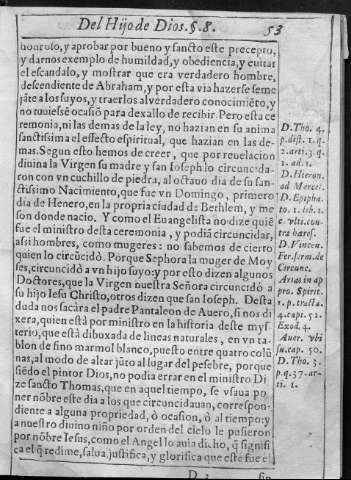 Del Hijo de Dios. §. 8. 53
honroso, y aprobar por bueno y sancto este precepto,
y darnos exemplo de humildad, y obediencia, y euitar
el escandalo, y mostrar que era verdadero hombre,
descendiente de Abraham, y por esta via hazerse seme
jãte a los suyos, y traerlos al verdadero conocimiẽto, y
no tuuiesse ocasiõ para dexallo de recibir. Pero esta ce
remonia, ni las demas de la ley, no hazian en su anima
sanctissima el effecto espiritual, que hazian en las de-
mas. Segun esto hemos de creer, que por reuelacion
diuina la Virgen su madre y san Ioseph lo circuncida-
ron con vn cuchillo de piedra, al octauo dia de su san-
ctissimo Nacimiento, que fue vn Domingo, primero
dia de Henero, en la propria ciudad de Bethlem, y me
son donde nacio. Y como el Euangelista no dize quiẽ
fue el ministro desta ceremonia, y podiã circuncidar,
assi hombres, como mugeres: no sabemos de cierto
quien lo circũcidò. Porque Sephora la muger de Moy
ses, circuncidò a vn hijo suyo: y por esto dizen algunos
Doctores, que la Virgen nuestra Señora circuncidò a
su hijo Iesu Christo, otros dizen que san Ioseph. Desta
duda nos sacàra el padre Pantaleon de Auero, si nos di
xera, quien està por ministro en la historia deste mys-
terio, que està dibuxada de lineas naturales, en vn ta-
blon de fino marmol blanco, puesto entre quatro colũ
nas, al modo de altar jũto al lugar del pesebre, porque
siẽdo el pintor Dios, no podia errar en el ministro. Di
ze sancto Thomas, que en aquel tiempo, se vsaua po
ner nõbre este dia a los que circuncidauan, correspon-
diente a alguna propriedad, ò ocasion, ò al tiempo: y
a nuestro diuino niño por orden del cielo le pusieron
por nõbre Iesus, como el Angel lo auia dicho, q̃ signifi
ca el q̃ redime, salua, justifica, y glorifica que este fue el
D. Tho. 4.
p. dist. 1. q.
2. arti. 3. q.
1. ad. 1.
D. Hieron.
ad Marcel.
D. Epipha.
to. 1. lib. 1.
c. vlti. con
tra hares.
D. Vincen.
Fer. serm. de
Circunc.
Arias in ap
pro. Spirit.
1. p. tracta.
4. capi. 52.
Exod. 4.
Auer. vbi
su. cap. 50.
D. Tho. 3.
p. q. 37. ar-
ti. 1.